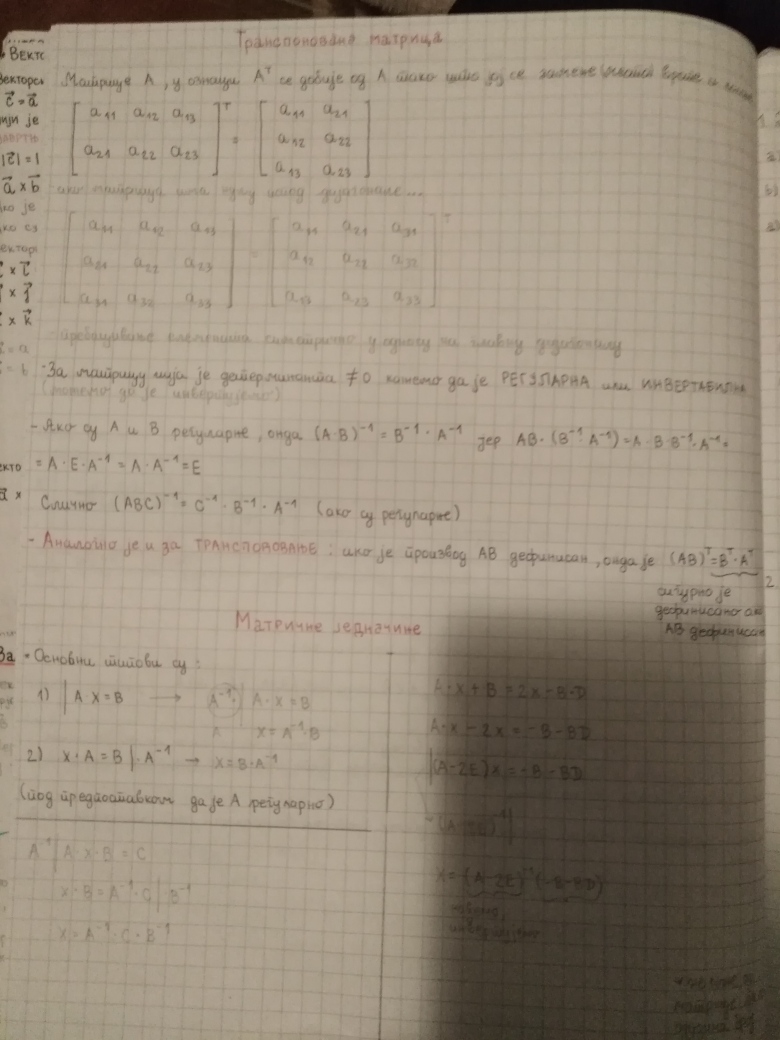 Транспонована матрица
Матрице A, у ознаци Aᵀ се добије од A тако што јој се замене места врсте и
[a₁₁ a₁₂ a₁₃]ᵀ = [a₁₁ a₂₁]
[a₂₁ a₂₂ a₂₃] [a₁₂ a₂₂]
[a₁₃ a₂₃]
ако матрица има нулу испод дијагонале...
[a₁₁ a₁₂ a₁₃] = [a₁₁ a₂₁ a₃₁]ᵀ
[a₂₁ a₂₂ a₂₃] [a₁₂ a₂₂ a₃₂]
[a₃₁ a₃₂ a₃₃] [a₁₃ a₂₃ a₃₃]
- пребацивање елемената симетрично у односу на главну дијагоналу
· За матрицу чија је детерминанта ≠0 кажемо да је РЕГУЛАРНА или ИНВЕРТАБИЛНА
(можемо да је инвертујемо)
- Ако су A и B регуларне, онда (A·B)⁻¹ = B⁻¹·A⁻¹ јер AB·(B⁻¹·A⁻¹)=A·B·B⁻¹·A⁻¹=
= A·E·A⁻¹ = A·A⁻¹ = E
Слично (ABC)⁻¹ = C⁻¹·B⁻¹·A⁻¹ (ако су регуларне)
- Аналогно је и за ТРАНСПОНОВАЊЕ: ако је производ AB дефинисан, онда је (AB)ᵀ=Bᵀ·Aᵀ
сигурно је
дефинисано ако
AB дефинисан
Матричне једначине
- Основни типови су:
1) | A·X=B → A⁻¹·| A·X=B
X=A⁻¹·B
2) X·A=B |·A⁻¹ → X=B·A⁻¹
(под претпоставком да је A регуларно)
A⁻¹| A·X·B=C
X·B=A⁻¹·C |·B⁻¹
X=A⁻¹·C·B⁻¹
A·X+B=2X-B·D
A·X-2X=-B-BD
|(A-2E)X=-B-BD
(A-2E)⁻¹|
X=(A-2E)⁻¹(-B-BD)
Вектс
Векторс
c⃗=a⃗
чији је
|c⃗|=1
a⃗×b⃗